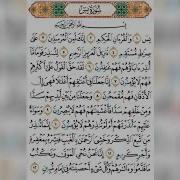 سُورَةُ يسٓ
بِسْمِ ٱللَّهِ ٱلرَّحْمَٰنِ ٱلرَّحِيمِ
يسٓ ١ وَٱلْقُرْءَانِ ٱلْحَكِيمِ ٢ إِنَّكَ لَمِنَ ٱلْمُرْسَلِينَ ٣ عَلَىٰ
صِرَٰطٍ مُّسْتَقِيمٍ ٤ تَنزِيلَ ٱلْعَزِيزِ ٱلرَّحِيمِ ٥ لِتُنذِرَ قَوْمًا مَّآ
أُنذِرَ ءَابَآؤُهُمْ فَهُمْ غَٰفِلُونَ ٦ لَقَدْ حَقَّ ٱلْقَوْلُ عَلَىٰٓ أَكْثَرِهِمْ
فَهُمْ لَا يُؤْمِنُونَ ٧ إِنَّا جَعَلْنَا فِىٓ أَعْنَٰقِهِمْ أَغْلَٰلًا فَهِىَ إِلَى
ٱلْأَذْقَانِ فَهُم مُّقْمَحُونَ ٨ وَجَعَلْنَا مِنۢ بَيْنِ أَيْدِيهِمْ سَدًّا
وَمِنْ خَلْفِهِمْ سَدًّا فَأَغْشَيْنَٰهُمْ فَهُمْ لَا يُبْصِرُونَ ٩ وَسَوَآءٌ
عَلَيْهِمْ ءَأَنذَرْتَهُمْ أَمْ لَمْ تُنذِرْهُمْ لَا يُؤْمِنُونَ ١٠ إِنَّمَا تُنذِرُ
مَنِ ٱتَّبَعَ ٱلذِّكْرَ وَخَشِىَ ٱلرَّحْمَٰنَ بِٱلْغَيْبِ فَبَشِّرْهُ بِمَغْفِرَةٍ
وَأَجْرٍ كَرِيمٍ ١١ إِنَّا نَحْنُ نُحْىِ ٱلْمَوْتَىٰ وَنَكْتُبُ مَا قَدَّمُوا۟
وَءَاثَٰرَهُمْ وَكُلَّ شَىْءٍ أَحْصَيْنَٰهُ فِىٓ إِمَامٍ مُّبِينٍ ١٢